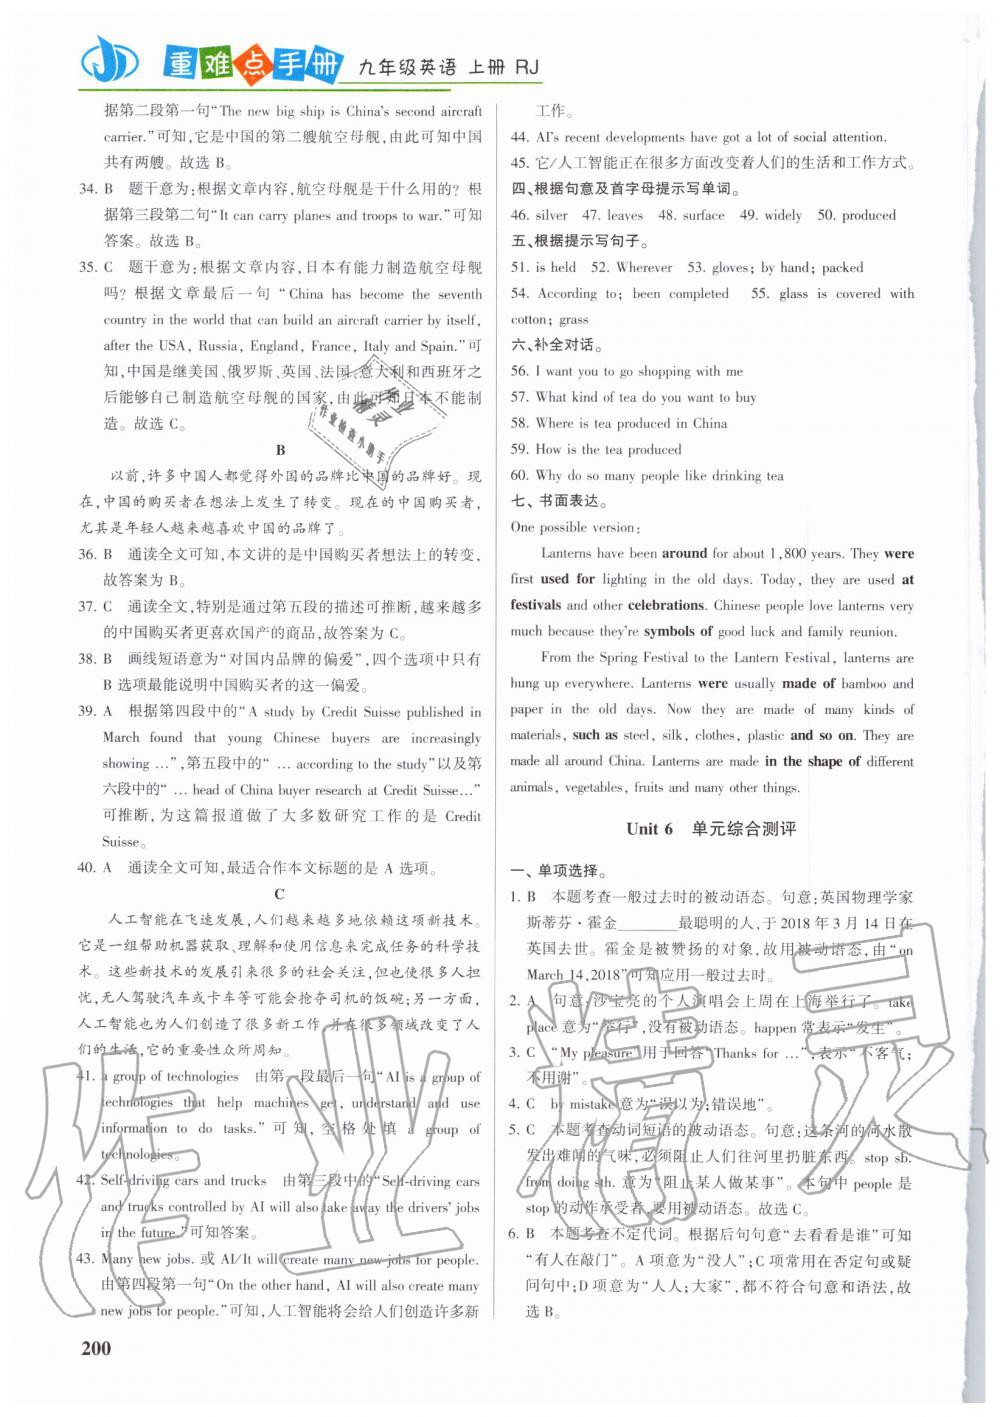 重难点手册 九年级英语 上册 RJ
据第二段第一句“The new big ship is China's second aircraft
carrier.”可知,它是中国的第二艘航空母舰,由此可知中国
共有两艘。故选 B。
34. B 题干意为:根据文章内容,航空母舰是干什么用的? 根
据第三段第二句“It can carry planes and troops to war.”可知
答案。故选 B。
35. C 题干意为:根据文章内容,日本有能力制造航空母舰
吗? 根据文章最后一句 “China has become the seventh
country in the world that can build an aircraft carrier by itself,
after the USA, Russia, England, France, Italy and Spain.”可
知,中国是继美国、俄罗斯、英国、法国、意大利和西班牙之
后能够自己制造航空母舰的国家,由此可知日本不能制
造。故选 C。
B
以前,许多中国人都觉得外国的品牌比中国的品牌好。现
在,中国的购买者在想法上发生了转变。现在的中国购买者,
尤其是年轻人越来越喜欢中国的品牌了。
36. B 通读全文可知,本文讲的是中国购买者想法上的转变,
故答案为 B。
37. C 通读全文,特别是通过第五段的描述可推断,越来越多
的中国购买者更喜欢国产的商品,故答案为 C。
38. B 画线短语意为“对国内品牌的偏爱”,四个选项中只有
B 选项最能说明中国购买者的这一偏爱。
39. A 根据第四段中的“A study by Credit Suisse published in
March found that young Chinese buyers are increasingly
showing …”,第五段中的“ … according to the study”以及第
六段中的“ … head of China buyer research at Credit Suisse…”
可推断,为这篇报道做了大多数研究工作的是 Credit
Suisse。
40. A 通读全文可知,最适合作本文标题的是 A 选项。
C
人工智能在飞速发展,人们越来越多地依赖这项新技术。
它是一组帮助机器获取、理解和使用信息来完成任务的科学技
术。这些新技术的发展引起很多的社会关注,但也有些担忧,
无人驾驶汽车或卡车等可能会抢夺司机的饭碗;另一方面,
人工智能也为人们创造了很多新工作,并在很多领域改变了人
们的生活,它的重要性众所周知。
41. a group of technologies 由第一段最后一句“AI is a group of
technologies that help machines get, understand and use
information to do tasks.”可知,空格处填 a group of
technologies。
42. Self-driving cars and trucks 由第三段中的“Self-driving cars
and trucks controlled by AI will also take away the drivers' jobs
in the future.”可知答案。
43. Many new jobs. 或 AI/It will create many new jobs for people.
由第四段第一句“On the other hand, AI will also create many
new jobs for people.”可知,人工智能将会给人们创造许多新
工作。
44. AI's recent developments have got a lot of social attention.
45. 它/人工智能正在很多方面改变着人们的生活和工作方式。
四、根据句意及首字母提示写单词。
46. silver 47. leaves 48. surface 49. widely 50. produced
五、根据提示写句子。
51. is held 52. Wherever 53. gloves; by hand; packed
54. According to; been completed 55. glass is covered with
cotton; grass
六、补全对话。
56. I want you to go shopping with me
57. What kind of tea do you want to buy
58. Where is tea produced in China
59. How is the tea produced
60. Why do so many people like drinking tea
七、书面表达。
One possible version:
Lanterns have been around for about 1,800 years. They were
first used for lighting in the old days. Today, they are used at
festivals and other celebrations. Chinese people love lanterns very
much because they're symbols of good luck and family reunion.
From the Spring Festival to the Lantern Festival, lanterns are
hung up everywhere. Lanterns were usually made of bamboo and
paper in the old days. Now they are made of many kinds of
materials, such as steel, silk, clothes, plastic and so on. They are
made all around China. Lanterns are made in the shape of different
animals, vegetables, fruits and many other things.
Unit 6 单元综合测评
一、单项选择。
1. B 本题考查一般过去时的被动语态。句意:英国物理学家
斯蒂芬·霍金________最聪明的人,于 2018 年 3 月 14 日在
英国去世。霍金是被赞扬的对象,故用被动语态,由“on
March 14,2018”可知应用一般过去时。
2. A 句意:沙宝亮的个人演唱会上周在上海举行了。take
place 意为“举行”,没有被动语态。happen 常表示“发生”。
3. C “My pleasure”用于回答“Thanks for …”,表示“不客气;
不用谢”。
4. C by mistake 意为“误以为;错误地”。
5. C 本题考查动词短语的被动语态。句意:这条河的河水散
发出难闻的气味,必须阻止人们往河里扔脏东西。stop sb.
from doing sth. 意为“阻止某人做某事”。本句中 people 是
stop 的动作承受者,要用被动语态。故选 C。
6. B 本题考查不定代词。根据后句句意“去看看是谁”可知
“有人在敲门”。A 项意为“没人”;C 项常用在否定句或疑
问句中;D 项意为“人人;大家”,都不符合句意和语法,故
选 B。
200
作业精灵
作业检查小助手
作业精灵